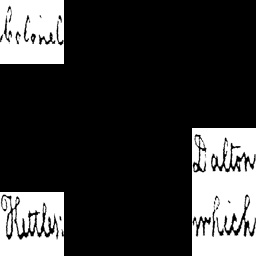 Colonel
Dalton
Hettles: which